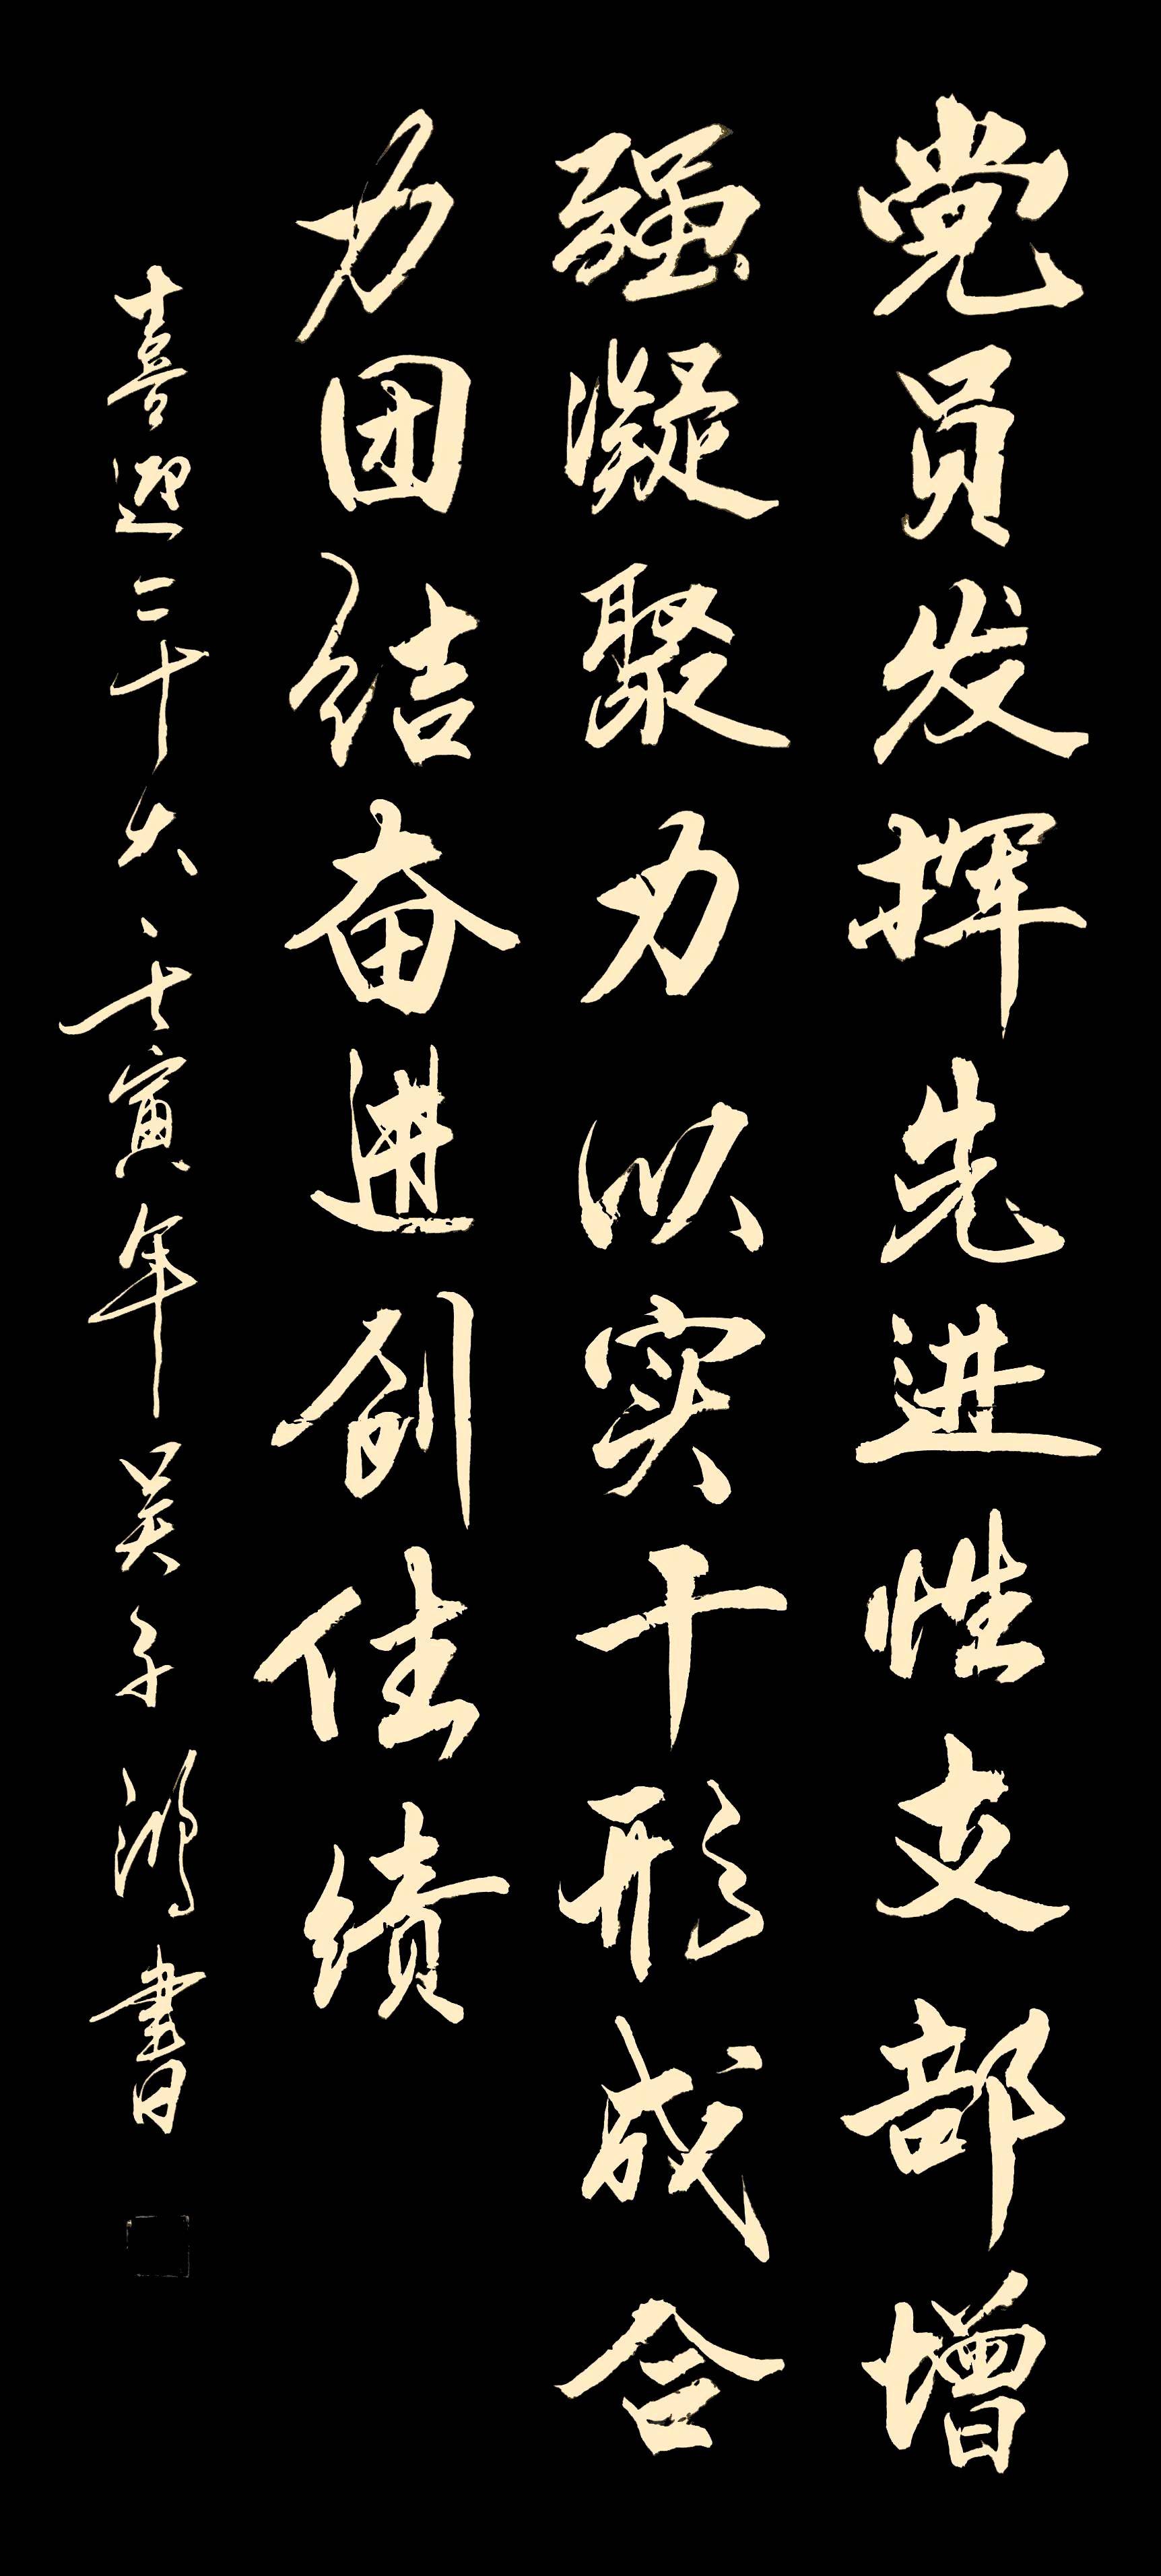 党员发挥先进性支部增
强凝聚力以实干形成合
力团结奋进创佳绩
喜迎二十大 壬寅年吴子鸿書